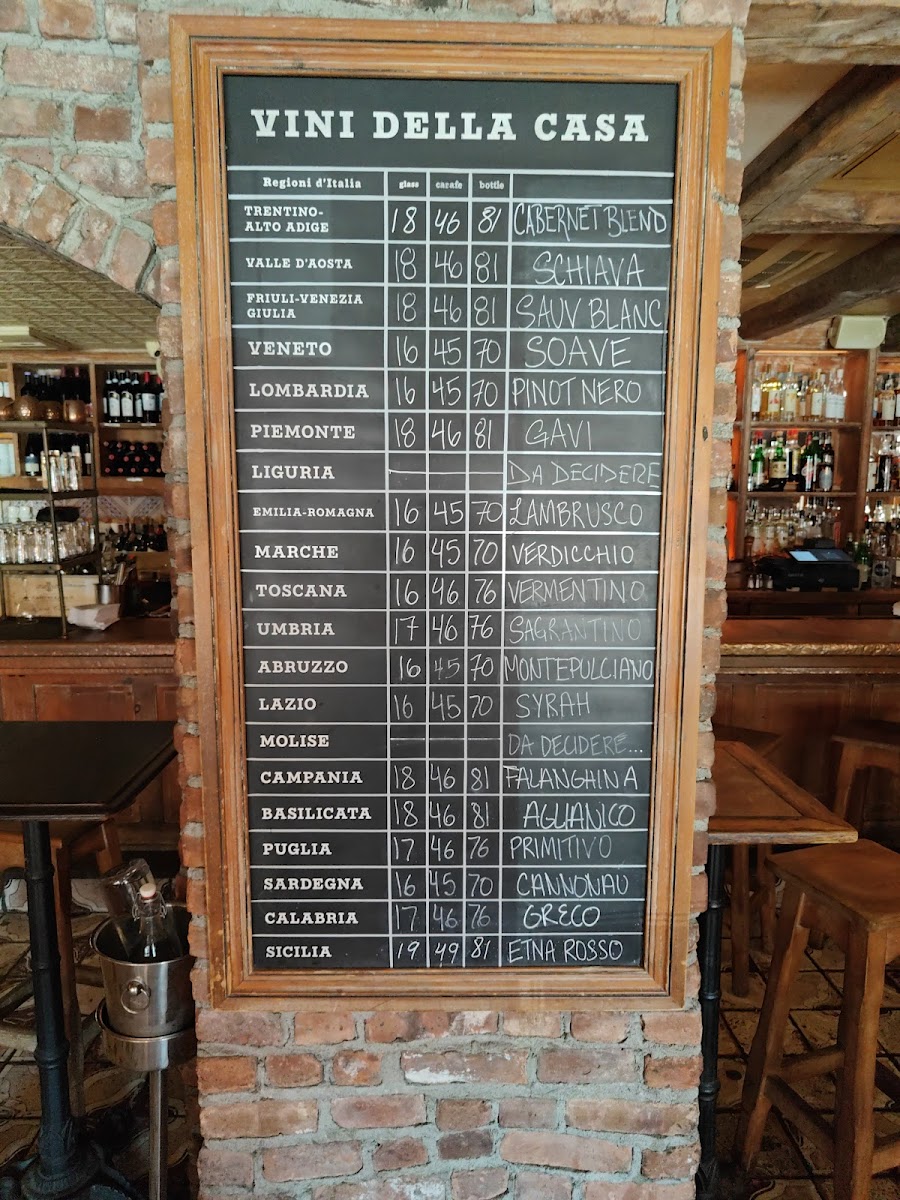 VINI DELLA CASA
Regioni d'Italia glass carafe bottle
TRENTINO-
ALTO ADIGE 18 46 81 CABERNET BLEND
VALLE D'AOSTA 18 46 81 SCHIAVA
FRIULI-VENEZIA
GIULIA 18 46 81 SAUV BLANC
VENETO 16 45 70 SOAVE
LOMBARDIA 16 45 70 PINOT NERO
PIEMONTE 18 46 81 GAVI
LIGURIA — — — DA DECIDERE
EMILIA-ROMAGNA 16 45 70 LAMBRUSCO
MARCHE 16 45 70 VERDICCHIO
TOSCANA 16 46 76 VERMENTINO
UMBRIA 17 46 76 SAGRANTINO
ABRUZZO 16 45 70 MONTEPULCIANO
LAZIO 16 45 70 SYRAH
MOLISE — — — DA DECIDERE...
CAMPANIA 18 46 81 FALANGHINA
BASILICATA 18 46 81 AGLIANICO
PUGLIA 17 46 76 PRIMITIVO
SARDEGNA 16 45 70 CANNONAU
CALABRIA 17 46 76 GRECO
SICILIA 19 49 81 ETNA ROSSO